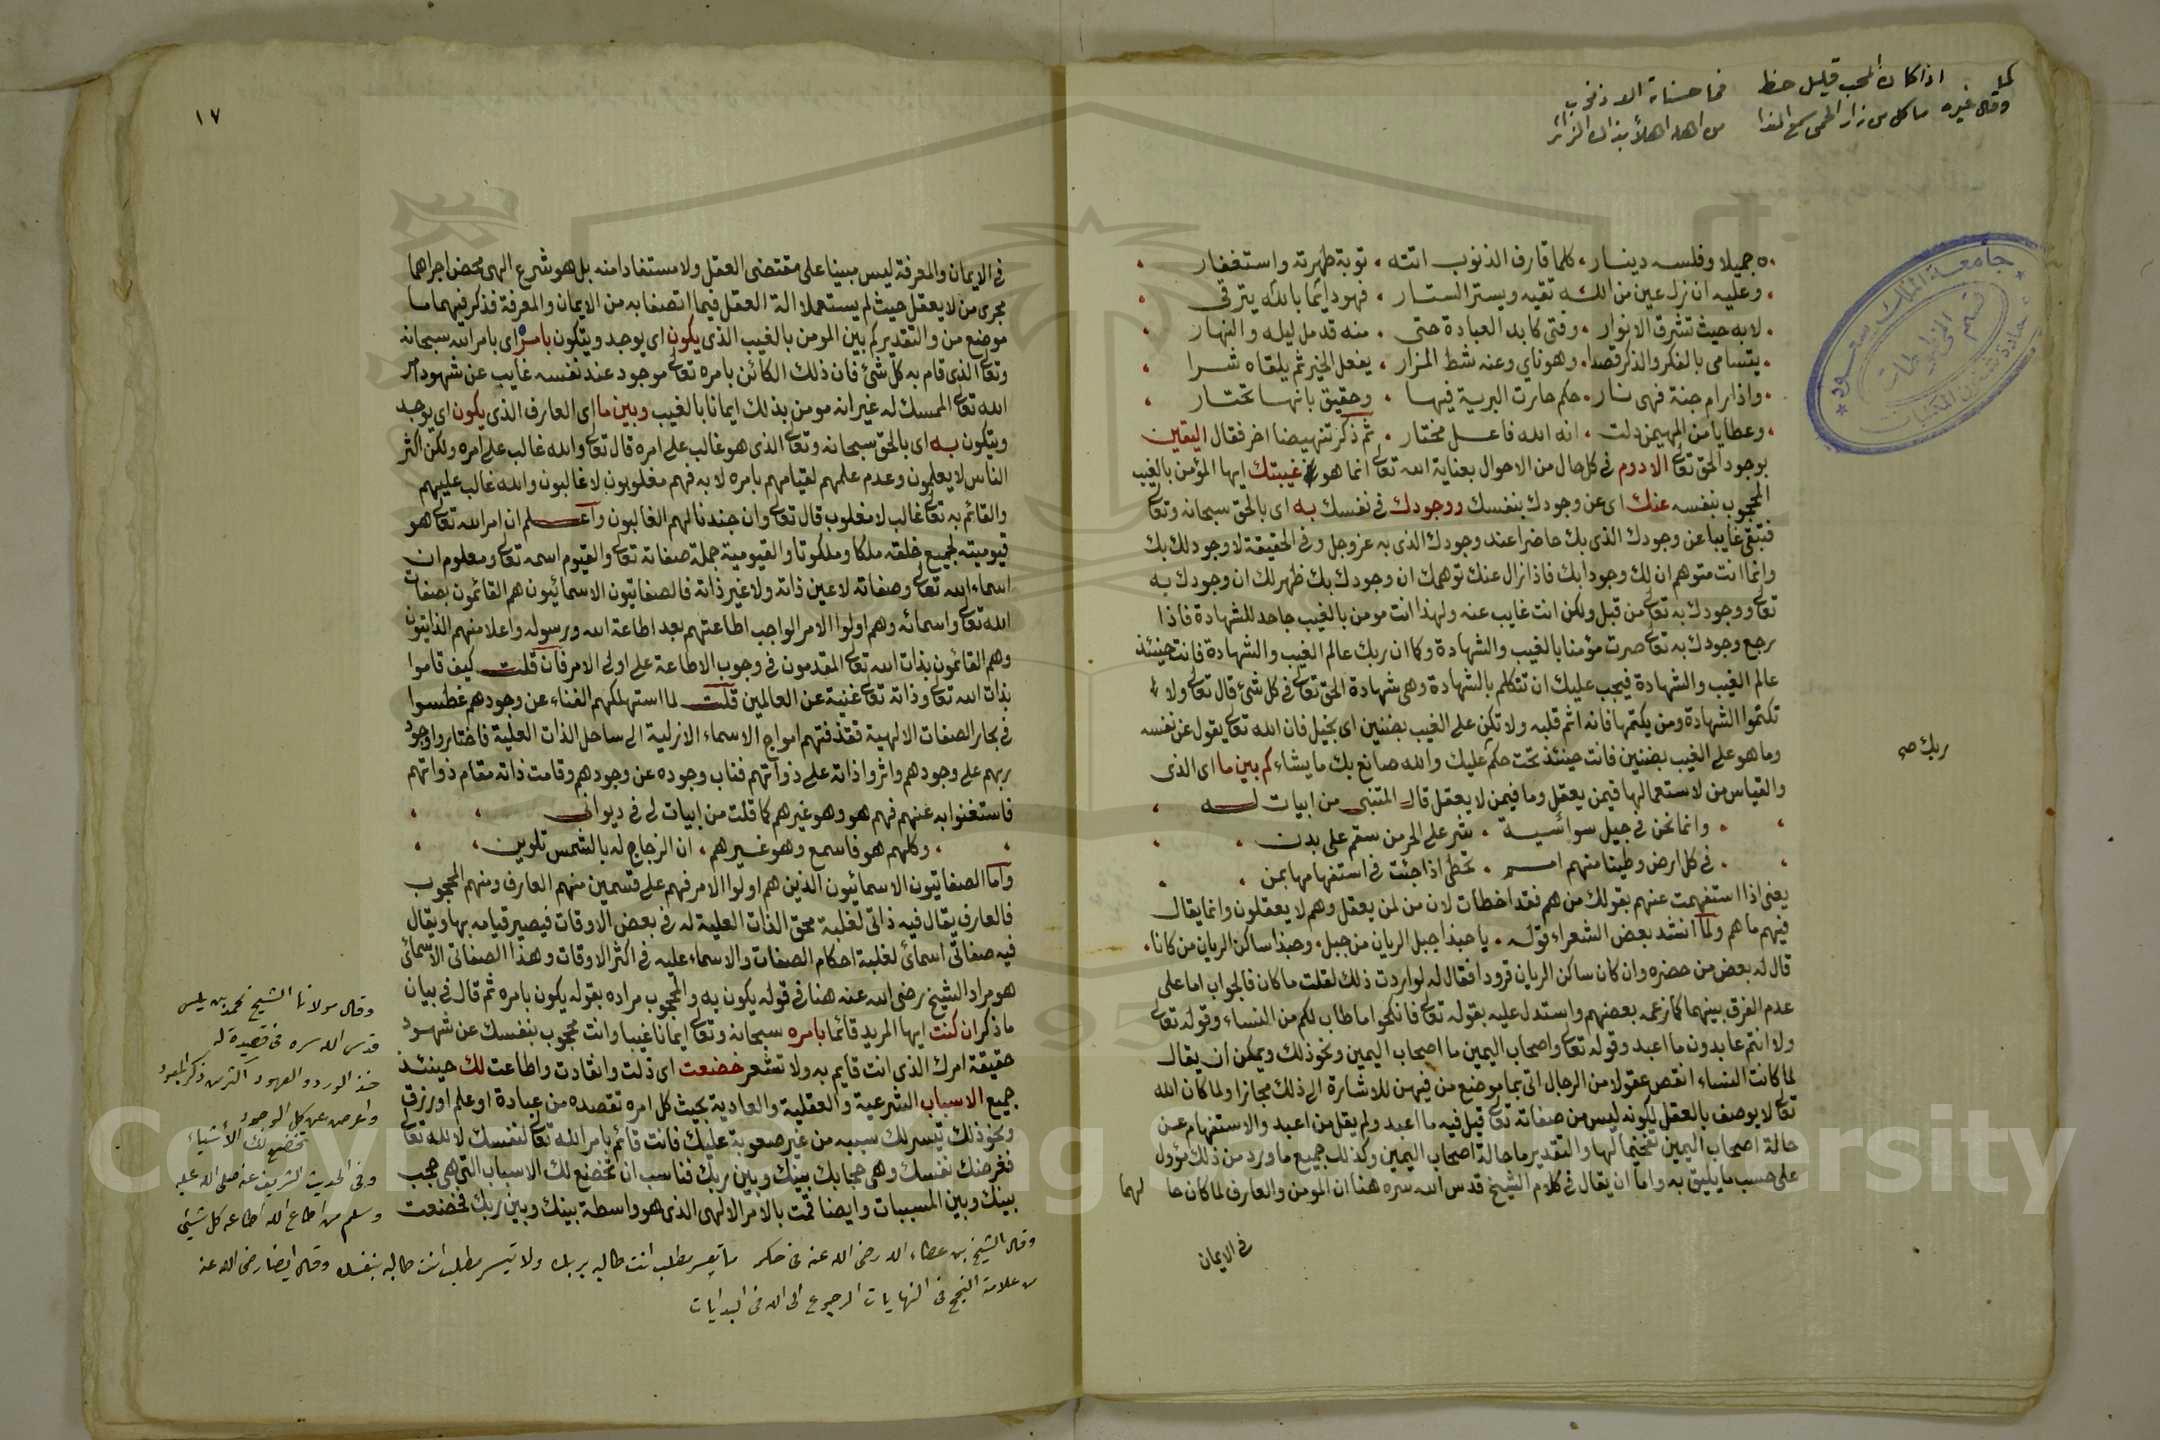 كما اذا كان المحب قليل حظ فما حسناته الا ذنوب
وقال غيره ما كل من زار الحمى سمع الندا من اهله اهلا بذاك الزائر
جميلا وفلسه دينار ، كلما قارف الذنوب اتته ، توبة طهرته واستغفار
وعليه ان زل عين من الله تقيه ويستر الستار ، فهو دائما بالله يترقى
لا به حيث تشرق الانوار ، وفتى كابد العبادة حتى ، منه قد مل ليله والنهار
يتسامى بالفكر والذكر قصدا ، وهو ناي وعنه شط المزار ، يفعل الخير ثم يلقاه شرا
واذا رام جنة فهي نار ، حكم حارت البرية فيها ، وحقيق بانها تختار
وعطايا من المهيمن دلت ، انه الله فاعل مختار ، ثم ذكر تنهيضا اخر فقال اليقين
بوجود الحق تعالى الادوم في كل حال من الاحوال بعناية الله تعالى انما هو في غيبتك ايها المؤمن بالغيب
المحجوب بنفسه عنك اي عن وجودك بنفسك ووجودك في نفسك به اي بالحق سبحانه وتعالى
فتبقى غايبا عن وجودك الذي بك حاضرا عند وجودك الذي به عز وجل وفي الحقيقة لا وجود لك بك
وانما انت متوهم ان لك وجودا بك فاذا زال عنك توهمك ان وجودك بك ظهر لك ان وجودك به
تعالى ووجودك به تعالى من قبل ولكن انت غايب عنه ولهذا انت مومن بالغيب جاحد للشهادة فاذا
رجع وجودك به تعالى صرت مؤمنا بالغيب والشهادة وكما ان ربك عالم الغيب والشهادة فانت حينئذ
عالم الغيب والشهادة فيجب عليك ان تتكلم بالشهادة وهي شهادة الحق تعالى في كل شئ قال تعالى ولا
تكتموا الشهادة ومن يكتمها فانه اثم قلبه ولا تكن على الغيب بضنين اي بخيل فان الله تعالى يقول عن نفسه
وما هو على الغيب بضنين فانت حينئذ تحت حكم عليك والله صانع بك ما يشاء كم بين ما اي الذي
ربك صح
والقياس من لاستعمالها فيمن يعقل وما فيمن لا يعقل قال المتنبي من ابيات له
وانما نحن في جيل سواسية ، شر على الحر من سقم على بدن
في كل ارض وطيتا منهم امم ، تخطي اذا جئت في استفهامها بمن
يعني اذا استفهمت عنهم بقولك من هم فقد اخطات لان من لمن يعقل وهم لا يعقلون وانما يقال
فيهم ما هم ولما انشد بعض الشعراء قوله ، يا حبذا جبل الريان من جبل ، وحبذا ساكن الريان من كانا ،
قال له بعض من حضره وان كان ساكن الريان قرودا فقال له لو اردت ذلك لقلت ما كان فالجواب اما على
عدم الفرق بينهما كما زعمه بعضهم واستدل عليه بقوله تعالى فانكحوا ما طاب لكم من النساء وقوله تعالى
ولا انتم عابدون ما اعبد وقوله تعالى واصحاب اليمين ما اصحاب اليمين ونحو ذلك ويمكن ان يقال
لما كانت النساء انقص عقولا من الرجال اتى بما موضع من فيهن للاشارة الى ذلك مجازا ولما كان الله
تعالى لا يوصف بالعقل لكونه ليس من صفاته تعالى قيل فيه ما اعبد ولم يقل من اعبد والاستفهام عن
حالة اصحاب اليمين تفخيما لها والتقدير ما حالة اصحاب اليمين وكذلك جميع ما ورد من ذلك مؤول
على حسب ما يليق به واما ان يقال في كلام الشيخ قدس الله سره هنا ان المومن والعارف لما كان حا
لهما
في الايمان
١٧
في الايمان والمعرفة ليس مبينا على مقتضى العقل ولا مستفادا منه بل هو شرع الهي محض اجراهما
مجرى من لا يعقل حيث لم يستعملا الة العقل فيما اتصفا به من الايمان والمعرفة فذكر فيهما ما
موضع من والتقدير كم بين المومن بالغيب الذي يكون اي يوجد ويتكون بامره اي بامر الله سبحانه
وتعالى الذي قام به كل شئ فان ذلك الكائن بامره تعالى موجود عند نفسه غايب عن شهود امر
الله تعالى الممسك له غير انه مومن بذلك ايمانا بالغيب وبين ما اي العارف الذي يكون اي يوجد
ويتكون به اي بالحق سبحانه وتعالى الذي هو غالب على امره قال تعالى والله غالب على امره ولكن اكثر
الناس لا يعلمون وعدم علمهم لقيامهم بامره لا به فهم مغلوبون لا غالبون والله غالب عليهم
والقائم به تعالى غالب لا مغلوب قال تعالى وان جندنا لهم الغالبون واعلم ان امر الله تعالى هو
قيوميته لجميع خلقه ملكا وملكوتا والقيومية جملة صفاته تعالى والقيوم اسمه تعالى ومعلوم ان
اسماء الله تعالى وصفاته لا عين ذاته ولا غير ذاته فالصفاتيون الاسمائيون هم القائمون بصفات
الله تعالى واسمائه وهم اولوا الامر الواجب اطاعتهم بعد اطاعة الله ورسوله واعلا منهم الذاتيون
وهم القائمون بذات الله تعالى المقدمون في وجوب الاطاعة على اولي الامر فان قلت كيف قاموا
بذات الله تعالى وذاته تعالى غنية عن العالمين قلت لما استهلكهم الفناء عن وجودهم غطسوا
في بحار الصفات الالهية فقذفتهم امواج الاسماء الازلية الى ساحل الذات العلية فاختاروا وجود
ربهم على وجودهم واثروا ذاته على ذواتهم فناب وجوده عن وجودهم وقامت ذاته مقام ذواتهم
فاستغنوا به عنهم فهم هو وهو غيرهم كما قلت من ابيات لي في ديواني
وكلهم هو فاسمع وهو غيرهم ، ان الزجاج له بالشمس تلوين ،
واما الصفاتيون الاسمائيون الذين هم اولوا الامر فهم على قسمين منهم العارف ومنهم المحجوب
فالعارف يقال فيه ذاتي لغلبة محق الذات العلية له في بعض الاوقات فيصير قيامه بها ويقال
فيه صفاتي اسمائي لغلبة احكام الصفات والاسماء عليه في اكثر الاوقات وهذا الصفاتي الاسمائي
هو مراد الشيخ رضي الله عنه هنا في قوله يكون به والمحجوب مراده بقوله يكون بامره ثم قال في بيان
ما ذكر ان كنت ايها المريد قائما بامره سبحانه وتعالى ايمانا غيبا وانت محجوب بنفسك عن شهود
حقيقة امرك الذي انت قايم به ولا تشعر خضعت اي ذلت وانقادت واطاعت لك حينئذ
جميع الاسباب الشرعية والعقلية والعادية بحيث كل امره تقصده من عبادة او علم او رزق
ونحو ذلك تيسر لك سببه من غير صعوبة عليك فانت قائم بامر الله تعالى لنفسك لا لله تعالى
فغرضك نفسك وهي حجابك بينك وبين ربك فناسب ان تخضع لك الاسباب التي هي حجب
بينك وبين المسببات وايضا قمت بالامر الالهي الذي هو واسطة بينك وبين ربك فخضعت
وقال مولانا الشيخ محمد بن يلس
قدس الله سره في قصيدة له
خذ الورد والعهود اكثر من ذكر المعبود
واعرض عن كل الوجود
تخضع لك الاشياء
وفي الحديث الشريف عنه صلى الله عليه
وسلم من اطاع الله اطاعه كل شيئ
وقال الشيخ بن عطاء الله رضي الله عنه في حكمه ما تعسر مطلب انت طالبه بربك ولا تيسر مطلب انت طالبه بنفسك وقال ايضا رضي الله عنه
من علامة النجح في النهايات الرجوع الى الله في البدايات
جامعة الملك سعود
قسم المخطوطات
عمادة شؤون المكتبات
Copyright © King Saud University